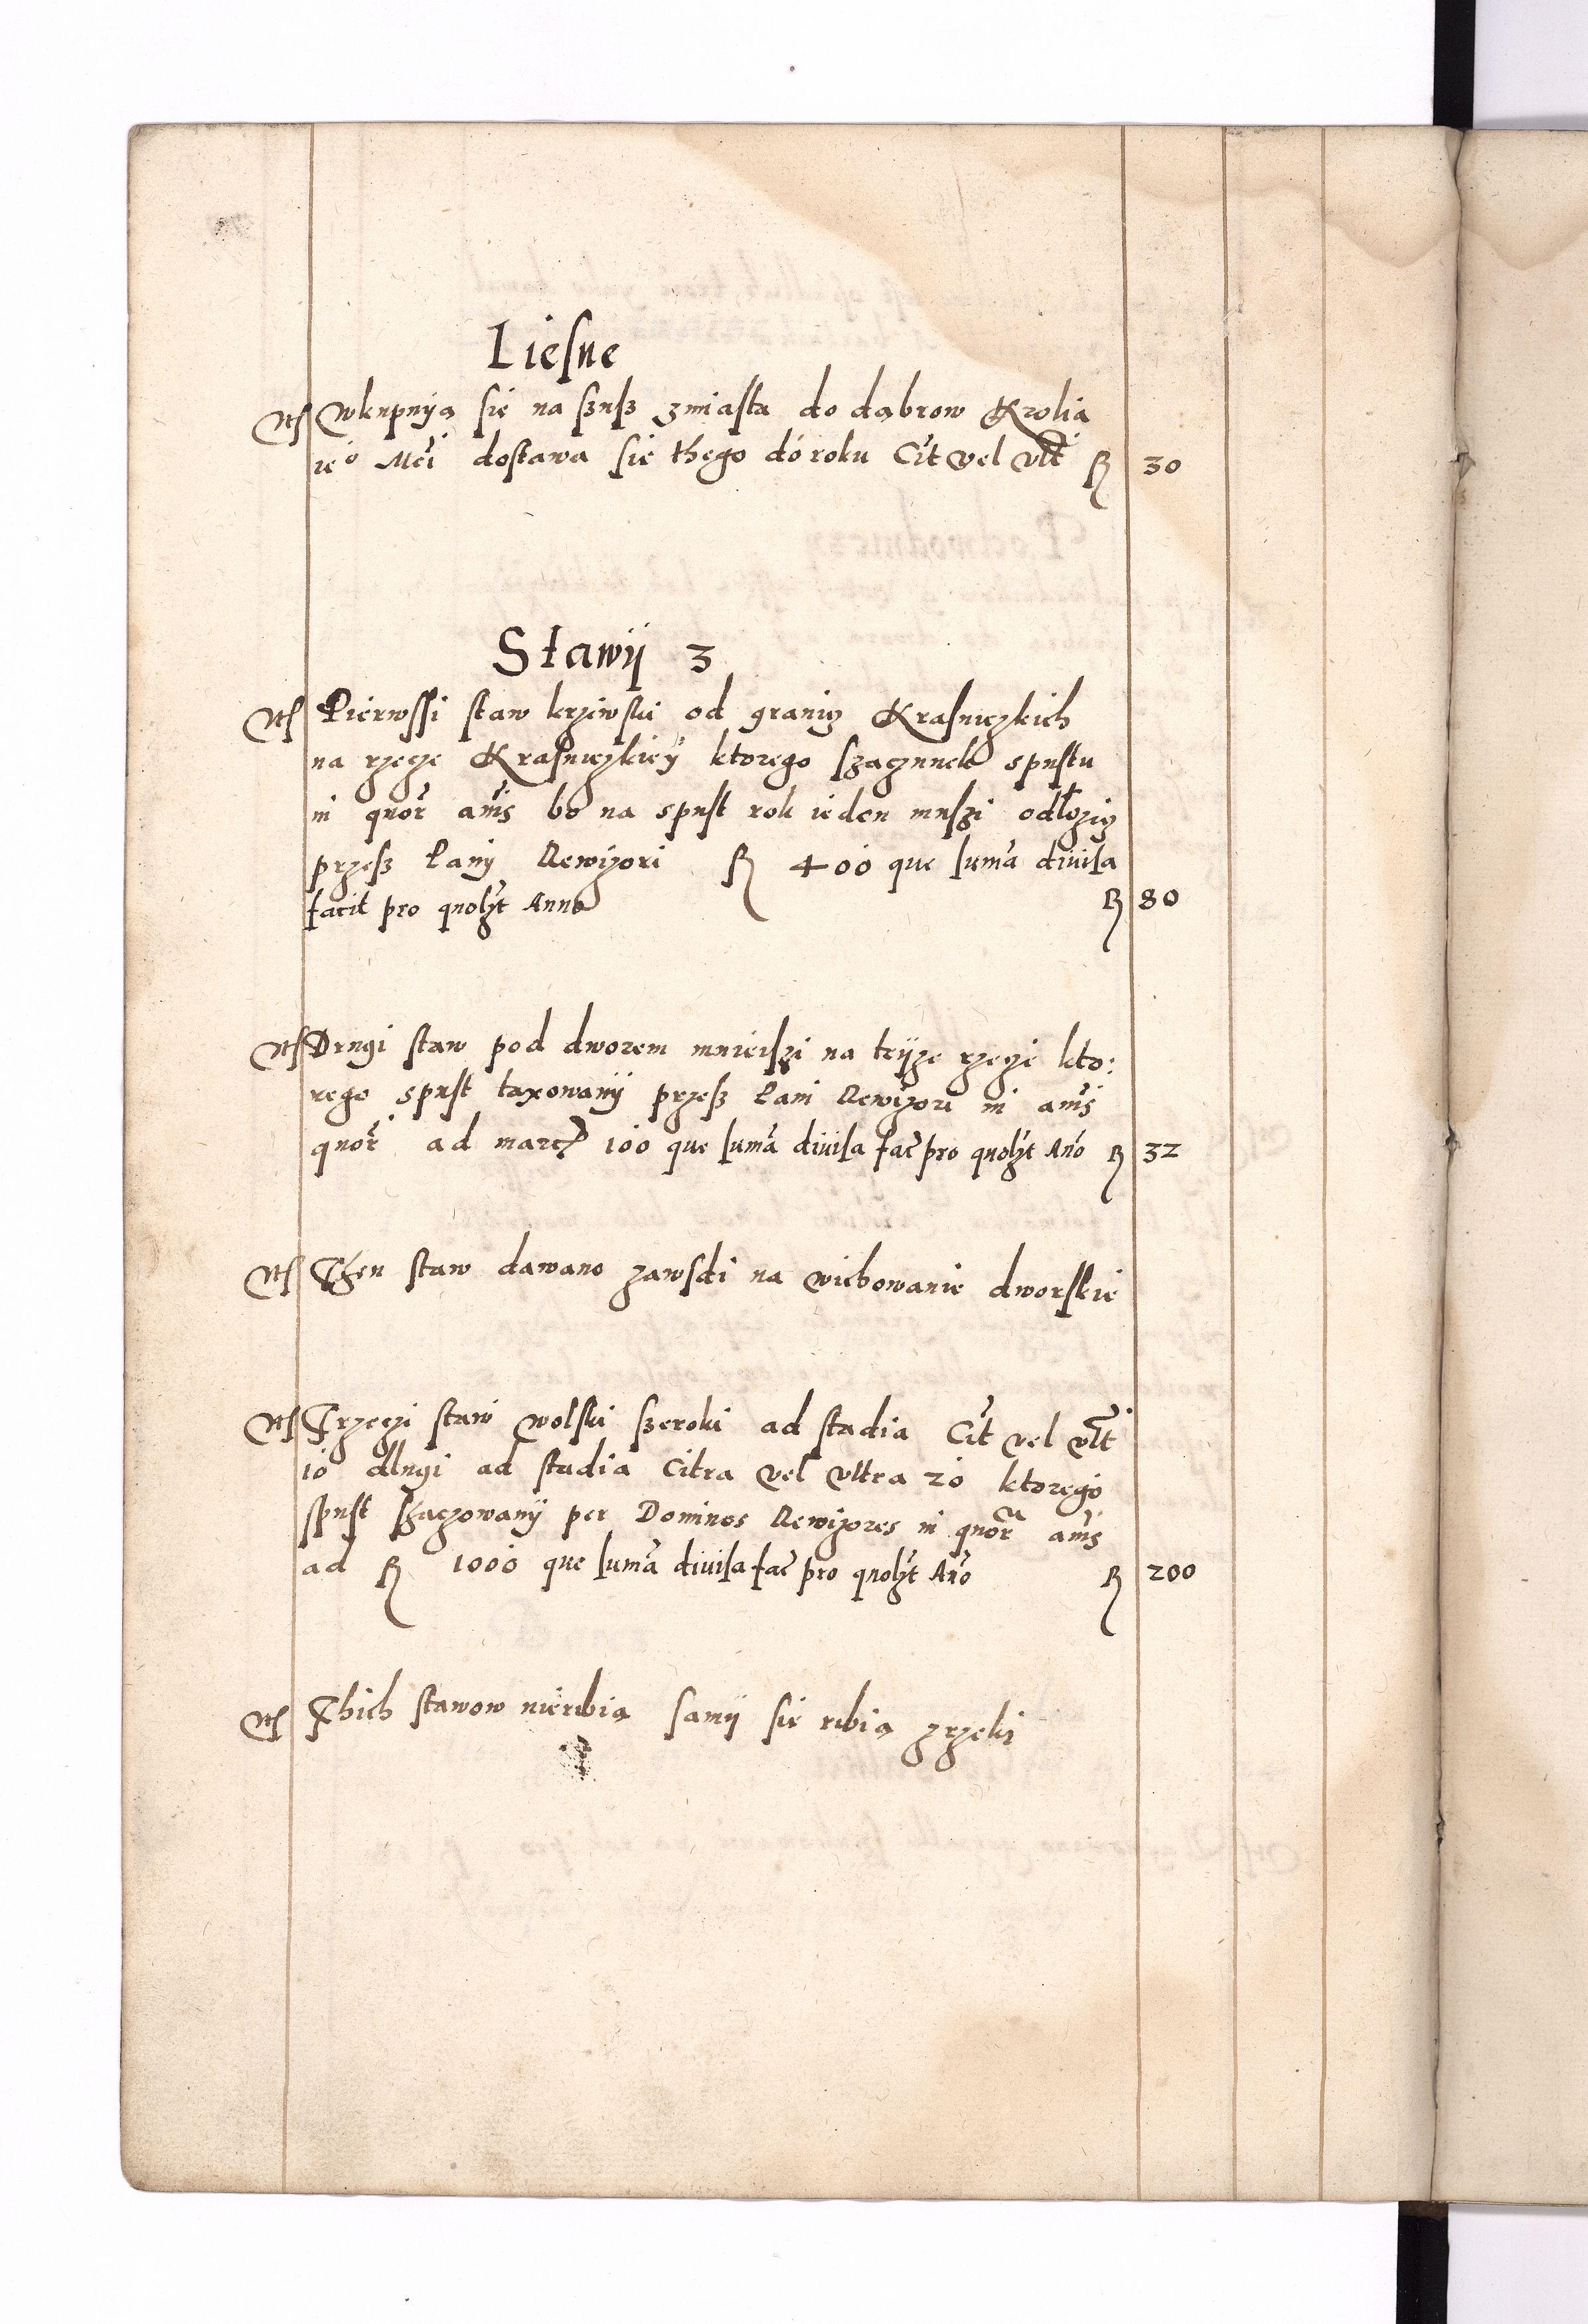 Liesne
Wkupnÿą się na szusz zmiasta do dąbrow Krolia
ieᵒ Mči dostawa się thego do roku Cit vel vlt R 30
Stawÿ 3
Pierwssi staw krziwski od granicz Krasniczkich
na rzecze Krasniczkieÿ ktorego szaczunek spustu
in quor̃ anĩs bo na spust rok ieden muszi odłozicz
przesz Panÿ Rewizori R 400 que suma divisa
facit pro quolzt Anno R 80
Drugi staw pod dworem mnieiszi na teÿze rzeczi kto:
rego spust taxowanÿ przesz Pani Rewizori in anĩs
quor̃ ad march 160 que suma divisa fač pro quolzt Año R 32
Then staw dawano zawsdi na wichowanie dworskie
Trzeczi staw wolski szeroki ad stadia Cit vel vlt
10 dlugi ad stadia Citra vel vltra 20 ktorego
spust szaczowanÿ per Dominos Rewizores in quor̃ anĩs
ad R 1000 que suma divisa fač pro quolzt Año R 200
Thich stawow nieribią samÿ się ribią zrzeki